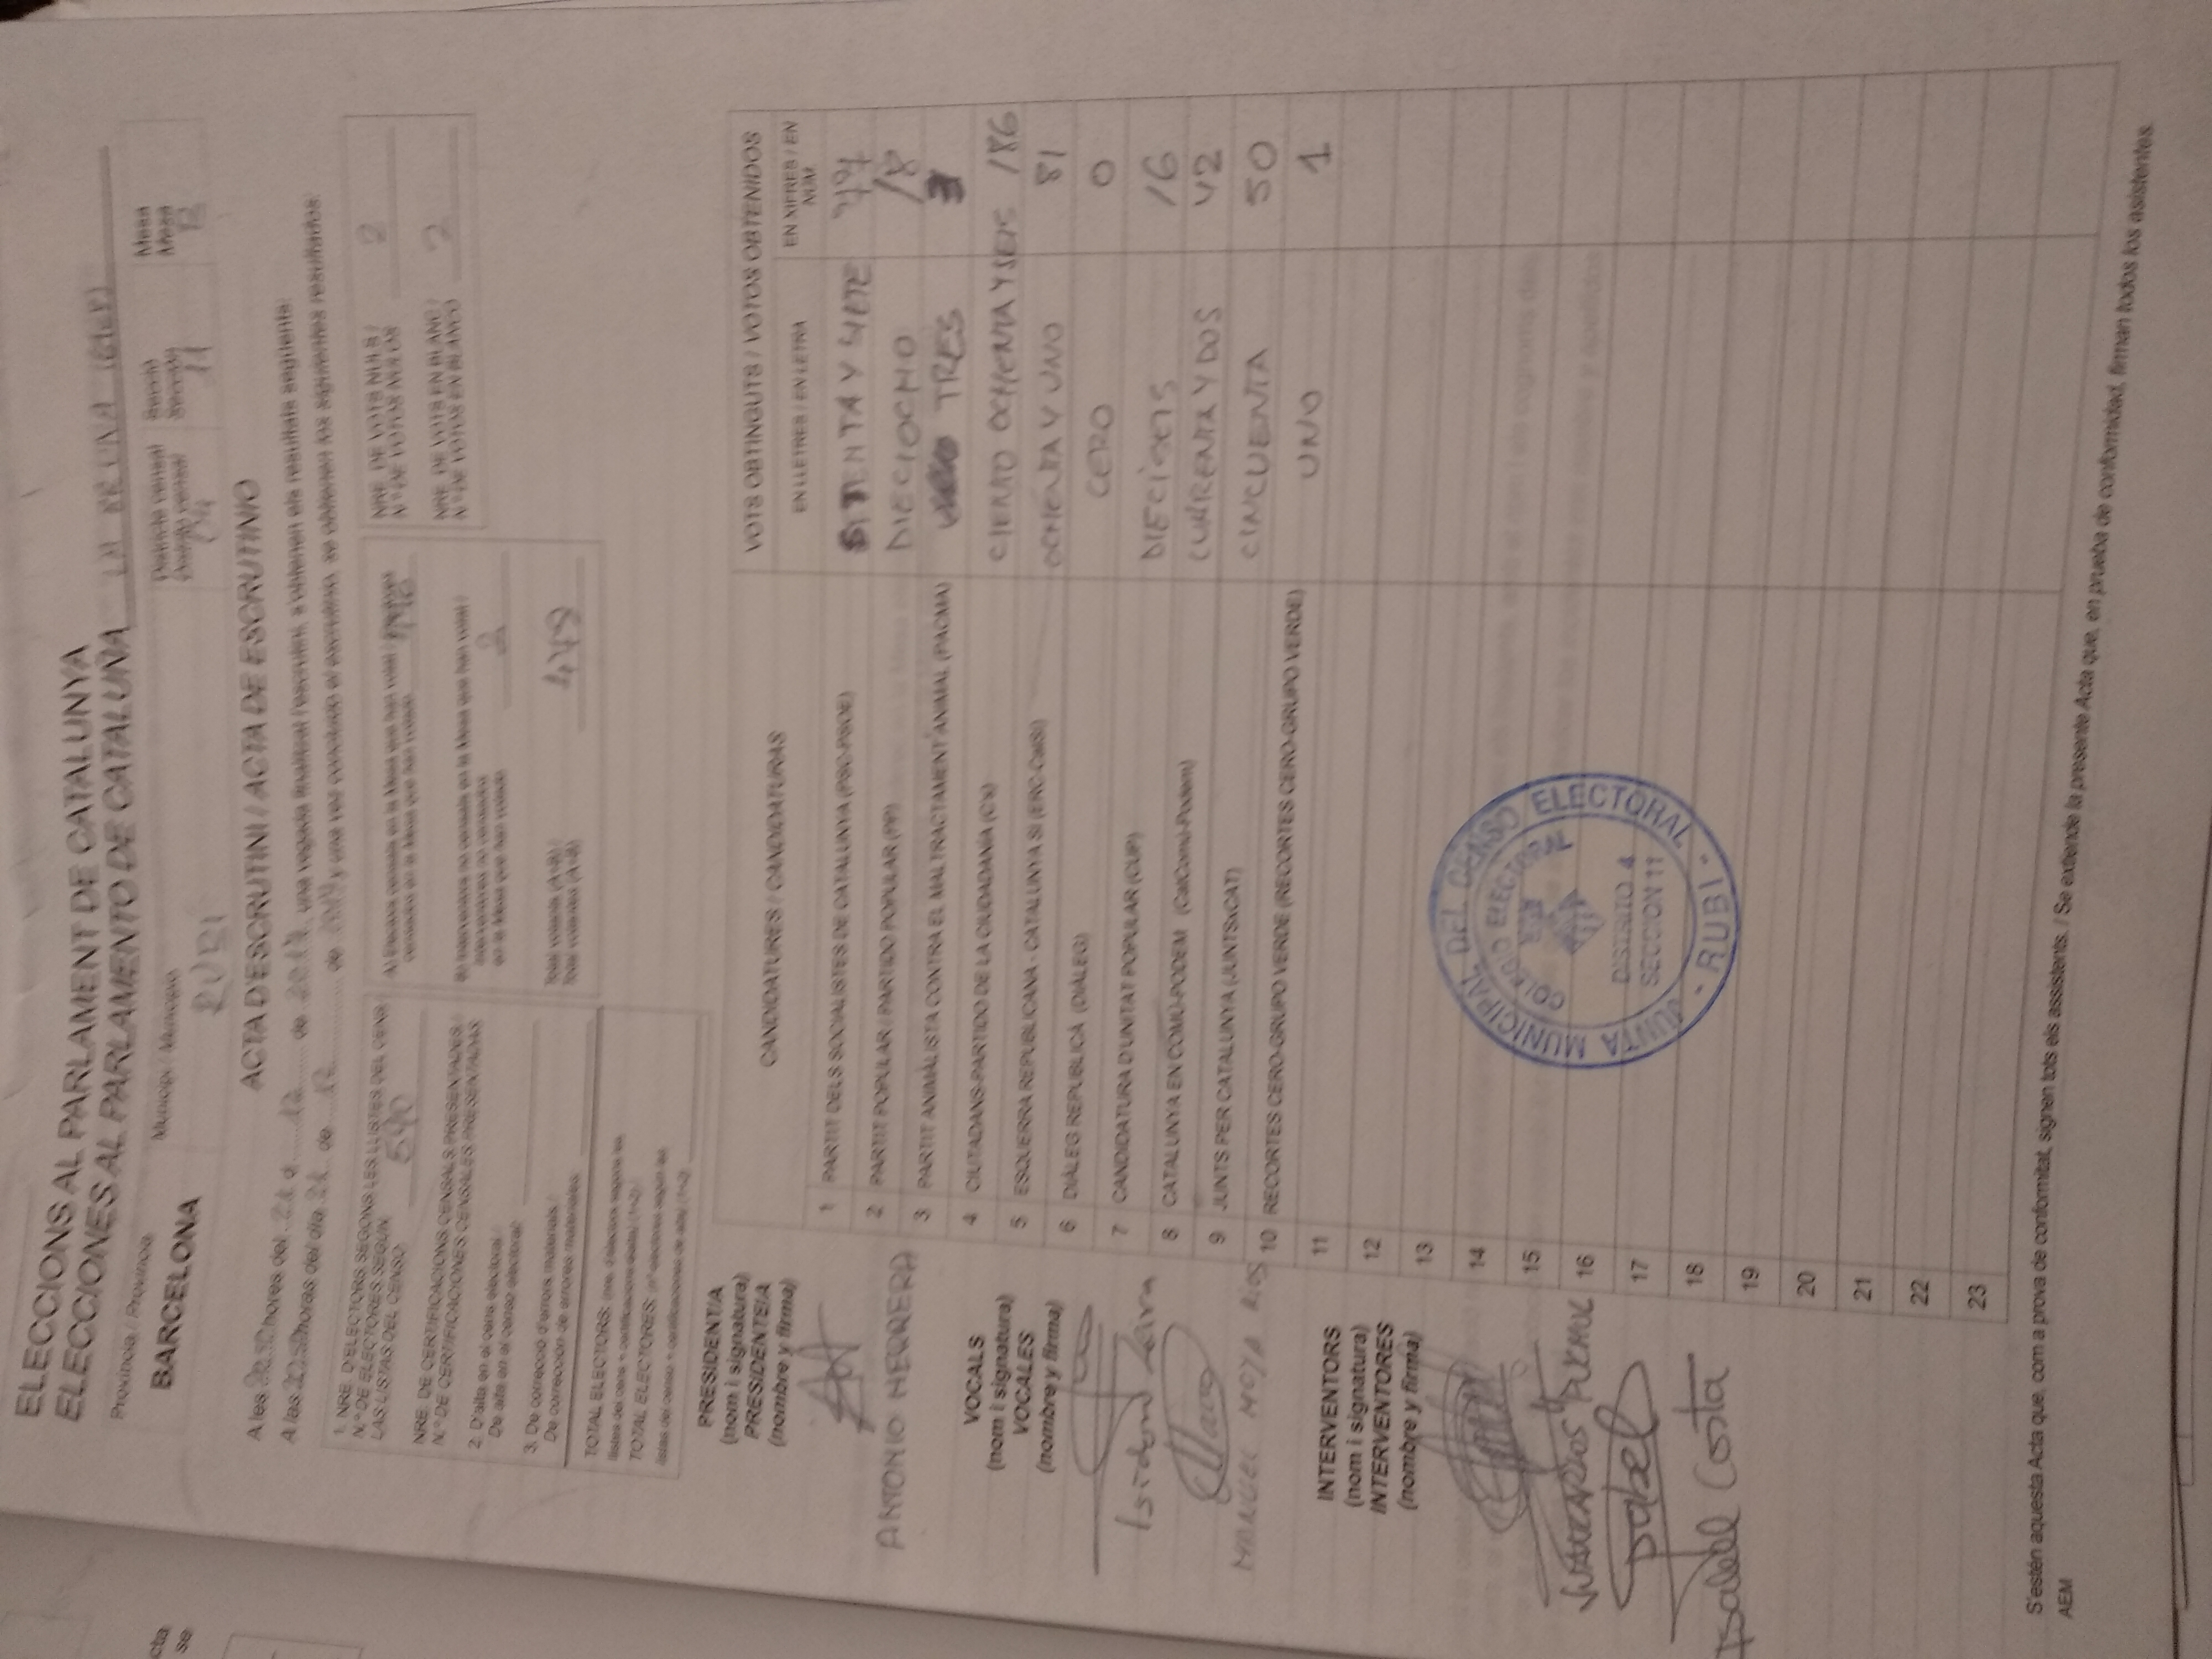 cta
se
ELECCIONS AL PARLAMENT DE CATALUNYA
ELECCIONES AL PARLAMENTO DE CATALUÑA LA BRUNA
Província / Provincia
BARCELONA
Municipi / Municipio
RUBI
Districte censal
Distrito censal
04
Secció
Sección
11
Mesa
Mesa
B
ACTA D'ESCRUTINI / ACTA DE ESCRUTINIO
A les hores del 21 d 12 de 2017, una vegada finalitzat l'escrutini, s'obtenen els resultats següents:
A las horas del día 21 de 12 de 2017 y una vez concluido el escrutinio, se obtienen los siguientes resultados:
1. NRE. D'ELECTORS SEGONS LES LLISTES DEL CENS /
N.º DE ELECTORES SEGÚN
LAS LISTAS DEL CENSO 590
NRE. DE CERTIFICACIONS CENSALS PRESENTADES /
N.º DE CERTIFICACIONES CENSALES PRESENTADAS
2. D'alta en el cens electoral /
De alta en el censo electoral:
3. De correcció d'errors materials /
De corrección de errores materiales:
TOTAL ELECTORS: (nre. d'electors segons les
llistes del cens + certificacions d'alta) (1+2) /
TOTAL ELECTORES: (nº electores según las
listas del censo + certificaciones de alta) (1+2)
A) Electors censats en la Mesa que han votat / Electores
censados en la Mesa que han votado
B) Interventors no censats en la Mesa que han votat /
Interventores no censados
en la Mesa que han votado 2
Total votants (A+B) /
Total votantes (A+B) 478
NRE. DE VOTS NULS /
N.º DE VOTOS NULOS 2
NRE. DE VOTS EN BLANC /
N.º DE VOTOS EN BLANCO 2
PRESIDENT/A
(nom i signatura)
PRESIDENTE/A
(nombre y firma)
ANTONIO HERRERA
VOCALS
(nom i signatura)
VOCALES
(nombre y firma)
Isidoro
MANUEL MOYA RIOS
INTERVENTORS
(nom i signatura)
INTERVENTORES
(nombre y firma)
JUAN CARLOS
Isabel
Isabel Costa
CANDIDATURES / CANDIDATURAS
VOTS OBTINGUTS / VOTOS OBTENIDOS
EN LLETRES / EN LETRA
EN XIFRES / EN
NÚM.
1 PARTIT DELS SOCIALISTES DE CATALUNYA (PSC-PSOE) SETENTA Y SIETE 77
2 PARTIT POPULAR / PARTIDO POPULAR (PP) DIECIOCHO 18
3 PARTIT ANIMALISTA CONTRA EL MALTRACTAMENT ANIMAL (PACMA) TRES 3
4 CIUTADANS-PARTIDO DE LA CIUDADANÍA (C's) CIENTO OCHENTA Y SEIS 186
5 ESQUERRA REPUBLICANA - CATALUNYA SÍ (ERC-CatSí) OCHENTA Y UNO 81
6 DIÀLEG REPUBLICÀ (DIÀLEG) CERO 0
7 CANDIDATURA D'UNITAT POPULAR (CUP) DIECISEIS 16
8 CATALUNYA EN COMÚ-PODEM (CatComú-Podem) CUARENTA Y DOS 42
9 JUNTS PER CATALUNYA (JUNTSxCAT) CINCUENTA 50
10 RECORTES CERO-GRUPO VERDE (RECORTES CERO-GRUPO VERDE) UNO 1
11
12
13
14
15
16
17
18
19
20
21
22
23
JUNTA MUNICIPAL DEL CENSO ELECTORAL
COLEGIO ELECTORAL
DISTRITO 4
SECCION 11
- RUBI -
S'estén aquesta Acta que, com a prova de conformitat, signen tots els assistents. / Se extiende la presente Acta que, en prueba de conformidad, firman todos los asistentes.
AEM